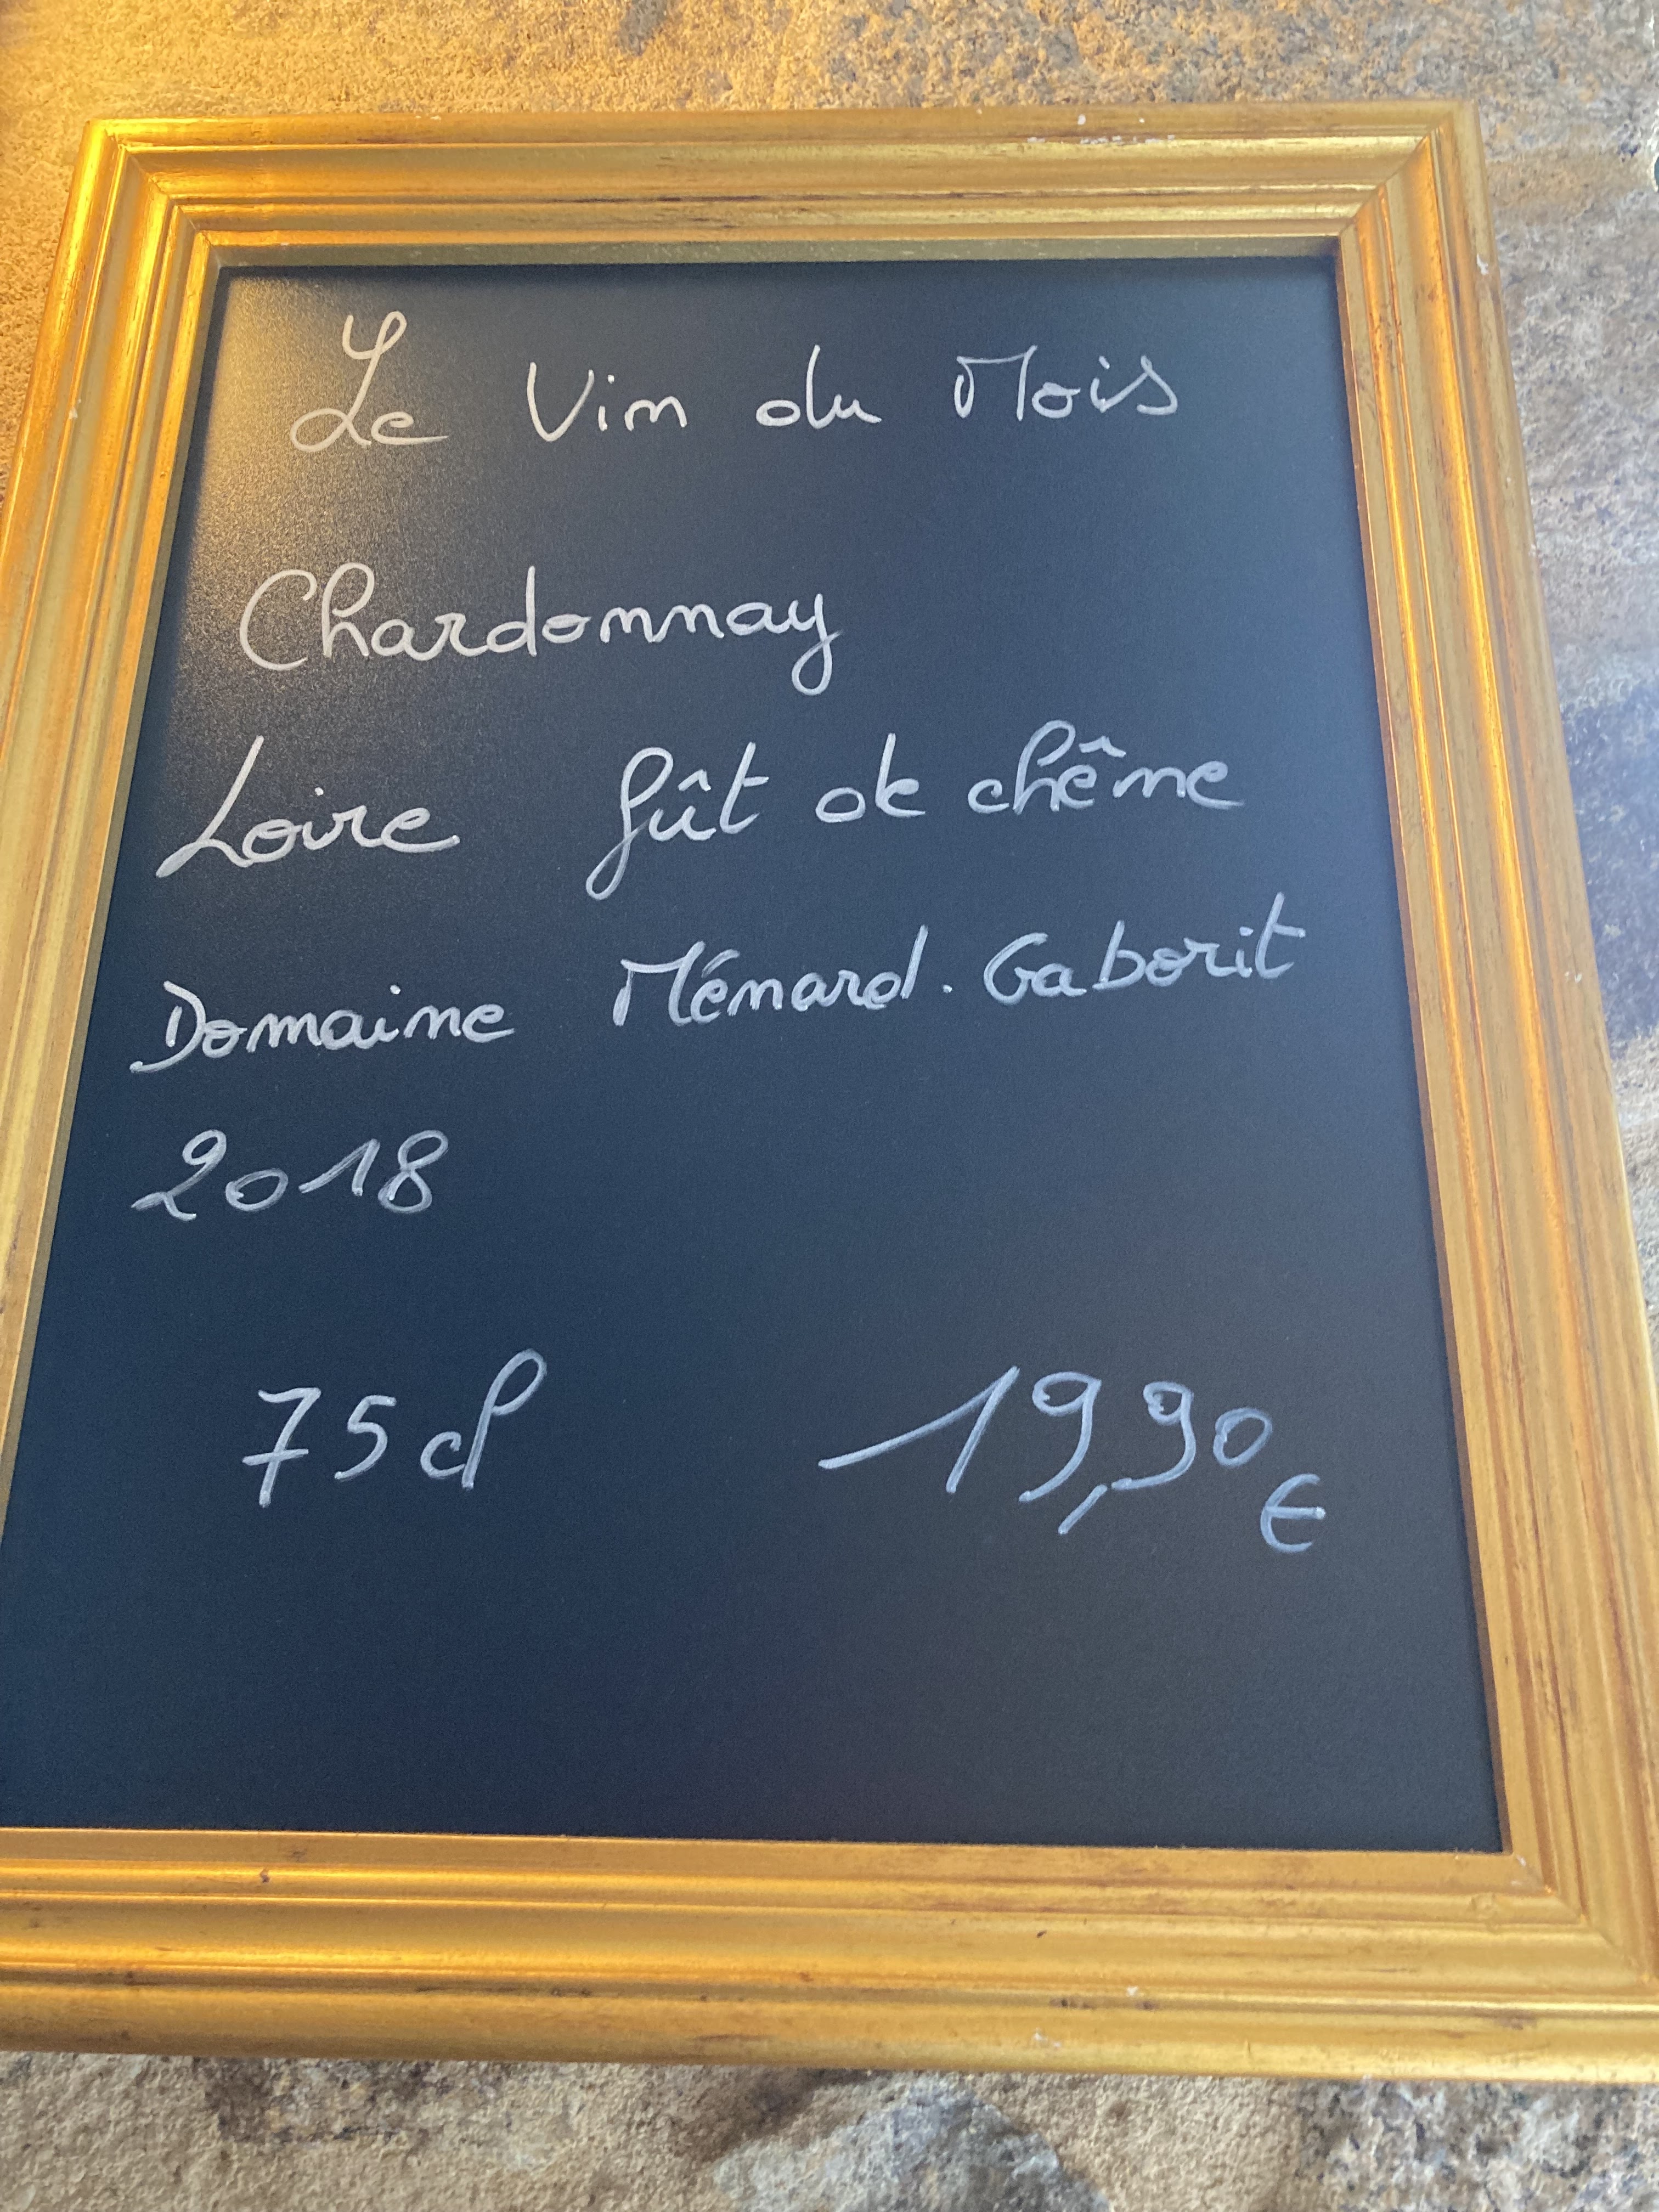 Le Vin du Mois
Chardonnay
Loire fût de chêne
Domaine Ménard. Gaborit
2018
75cl 19,90 €